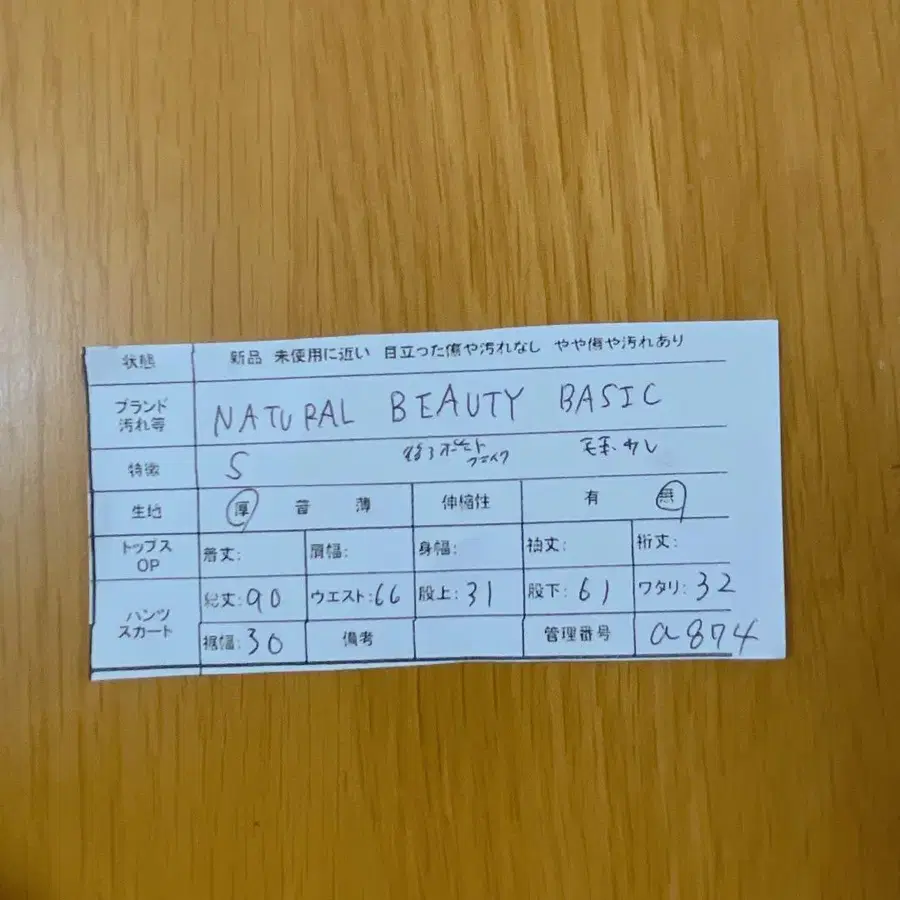 状態 新品 未使用に近い 目立った傷や汚れなし やや傷や汚れあり
ブランド
汚れ等 NATURAL BEAUTY BASIC
特徴 S
生地 厚 普 薄 伸縮性 有 無
トップス
OP 着丈: 肩幅: 身幅: 袖丈: 裄丈:
パンツ
スカート 総丈:90 ウエスト:66 股上:31 股下:61 ワタリ:32
裾幅:30 備考 管理番号 a874